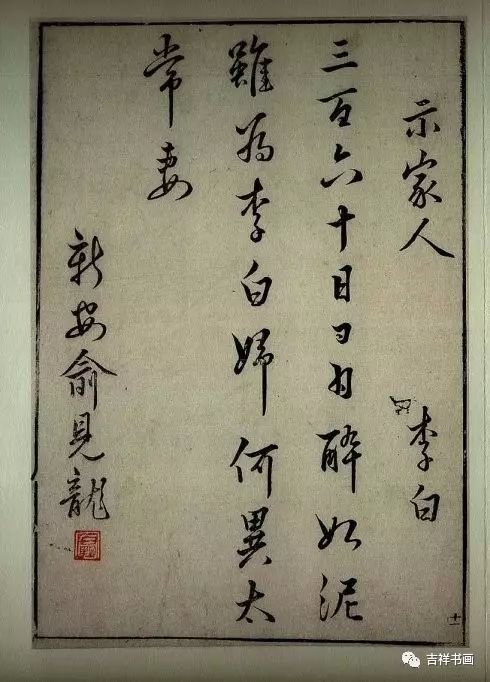 示家人
李白
三百六十日日日醉如泥
雖为李白婦何異太
常妻
新安俞見龍
十一
吉祥书画